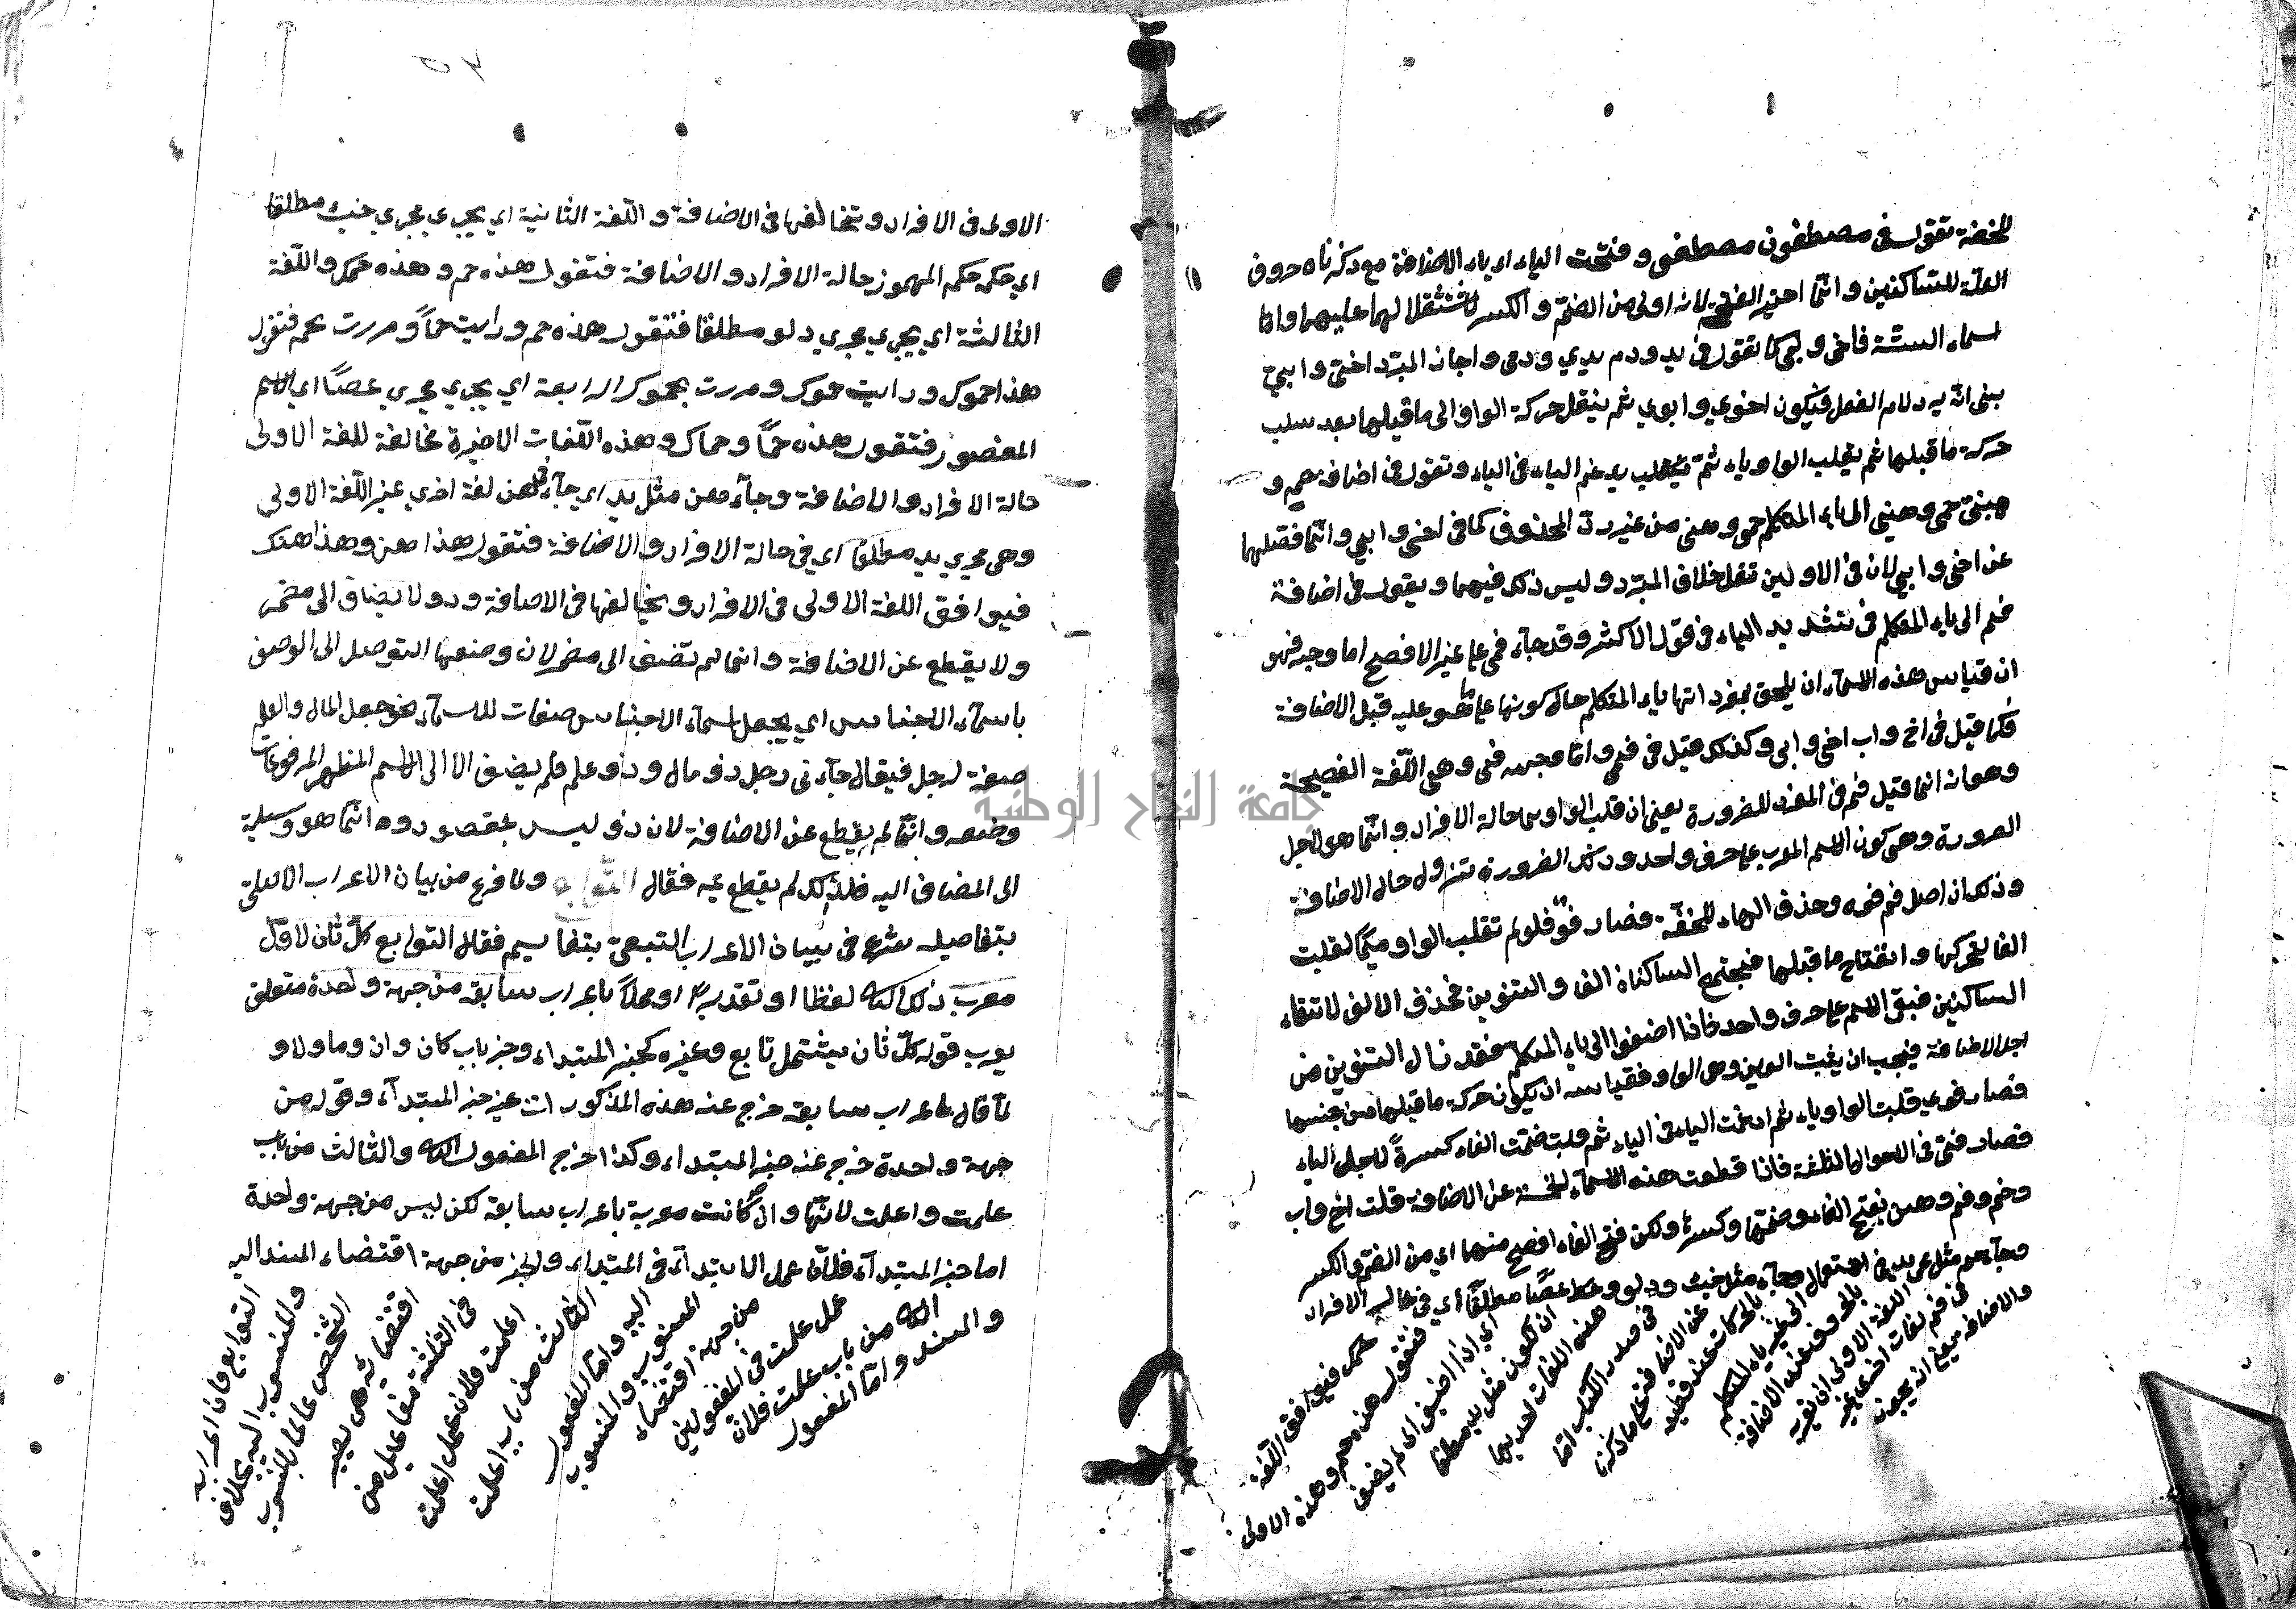 للخفة تقول في مصطفون مصطفي وفتحت الياء اي ياء الاضافة مع ذكرناه حروف
العلة للساكنين وانما اختير الفتح لانه اولى من الضم والكسر لثقلهما عليهما واما
اسماء الستة فاخي وابي كما تقول في يد ودم يدي ودمي واجاز المبرد اخيّ وابيّ
يعني انه يرد لام الفعل فيكون اخوي وابوي ثم ينقل حركة الواو الى ما قبلها بعد سلب
حركة ما قبلها ثم يقلب الواو ياء ثم يدغم الياء في الياء وتقول في اضافة حم و
هن حمي وهني الى ياء المتكلم حمي وهني من غير رد المحذوف كما في اخي وابي وانما فصلهما
عن اخي وابي لان في الاولين نقل خلاف المبرد وليس ذلك فيهما ويقول في اضافة
فم الى ياء المتكلم فيّ بتشديد الياء في قول الاكثر وقد جاء فمي على غير الافصح اما وجه فهو
ان قياس هذه الاسماء ان يلحق بمفرداتها ياء المتكلم حال كونها على ما هو عليه قبل الاضافة
فكما قيل في اخ واب اخي وابي وكذلك قيل في فم فمي واما وجه فيّ وهي اللغة الفصيحة
وهو انه انما قيل فم في المفرد للضرورة يعني ان قلب الواو ميما حالة الافراد وانما هو لاجل
الضرورة وهي كون الاسم المعرب على حرف واحد وذلك الضرورة تزول حال الاضافة
وذلك ان اصل فم فوه وحذف الهاء للخفة فصار فو فلو لم تقلب الواو ميما لقلبت
الفا لتحركها وانفتاح ما قبلها فيجتمع الساكنان الف والتنوين فحذف الالف لالتقاء
الساكنين فبقي الاسم على حرف واحد فاذا اضفوا الى ياء المتكلم فقد زال التنوين من
اجل الاضافة فيجب ان يثبت العين وهي الواو فقياسه ان يكون حركة ما قبلها من جنسها
فصار فوي قلبت الواو ياء ثم ادغمت الياء في الياء ثم قلبت ضمت الفاء كسرة لاجل الياء
فصار فيّ في الاحوال الثلثة فاذا قطعت هذه الاسماء الخمسة عن الاضافة قلت اخ واب
وحم وفم وهن بفتح الفاء وضمها وكسرها ولكن فتح الفاء افصح منهما اي من الضم والكسر
وجاء حم مثل يد في استعمال وجاء مثل خبء ودلو وعصا مطلقا اي في حالة الافراد
والاضافة
في فم لغات اخرى غير
اللغة الاولى
عند الاضافة
الى غير ياء المتكلم
بالحركات عند قطعه
عن الاضافة على ما ذكرنا
في صدر الكتاب اما
هذه اللغات احديها
ان يكون مثل يد مطلقا
اي اذا اضيف او لم يضف
فتقول هذه حم وهذه
حمك فيوافق اللغة الاولى
الاولى في الافراد وتخالفها في الاضافة واللغة الثانية اي يجري مجرى خبء مطلقا
اي حكمه حكم المهموز حالة الافراد والاضافة فتقول هذه حم وهذه حمك واللغة
الثالثة اي يجري مجرى دلو مطلقا فتقول هذه حم ورايت حماً ومررت بحم فتقول
هذا حموك ورايت حموك ومررت بحموك الرابعة اي يجري مجرى عصاً اي الاسم
المقصور فتقول هذه حماً وحماك وهذه اللغات الاخيرة مخالفة للغة الاولى
حالة الافراد والاضافة وجاء هن مثل يد اي جاء في هن لغة اخرى غير اللغة الاولى
وهي مجرى يد مطلقا اي في حالة الافراد والاضافة فتقول هذا هن وهذا هنك
فيوافق اللغة الاولى في الافراد ويخالفها في الاضافة وذو لا يضاف الى مضمر
ولا يقطع عن الاضافة وانما لم تضف الى مضمر لان وضعها التوصل الى الوصف
باسماء الاجناس اي يجعل اسماء الاجناس صفات للاسماء نحو جعل المال والعلم
صفة لرجل فيقال جاءني رجل ذو مال وذو علم فلم يضف الا الى الاسم المظهر المرفوعات
وضعه وانما لم يقطع عن الاضافة لان ذو ليس بمقصود وانما هو وسيلة
الى المضاف اليه فلذلك لم يقطع عنه فقال التوابع ولما فرغ من بيان الاعراب الاصلي
بتفاصيله شرع في بيان الاعراب التبعي بتقاسيم فقال التوابع كل ثان لاول
معرب ذلك الثاني لفظا او تقديرا او محلاً باعراب سابقه من جهة واحدة متعلق
بمعرب قوله كل ثان يشتمل تابع وغيره كخبر المبتداء وخبر باب كان وان وما ولا و
لما قال باعراب سابقه خرج عنه هذه المذكورات غير خبر المبتداء وقوله من
جهة واحدة خرج عنه خبر المبتداء وكذا خرج المفعول الثاني والثالث من باب
علمت واعلمت لانها وان كانت معربة باعراب سابقه لكن ليس من جهة واحدة
اما خبر المبتداء فلان عمل الابتداء في المبتداء والخبر من جهة اقتضاء المسند اليه
والمسند واما المفعول
الثاني من باب علمت فلان
عمل علمت في المفعولين
من جهة اقتضاء
المنسوب والمنسوب
اليه واما المفعول
الثالث من باب اعلمت
اعلمت فلان عمل اعلمت
في الثلثة مفاعيل من
اقتضائه هي يصير
الشخص عالما بالمنسوب
والمنسوب اليه بخلاف
التوابع فان اعرابه
جامعة النجاح الوطنية